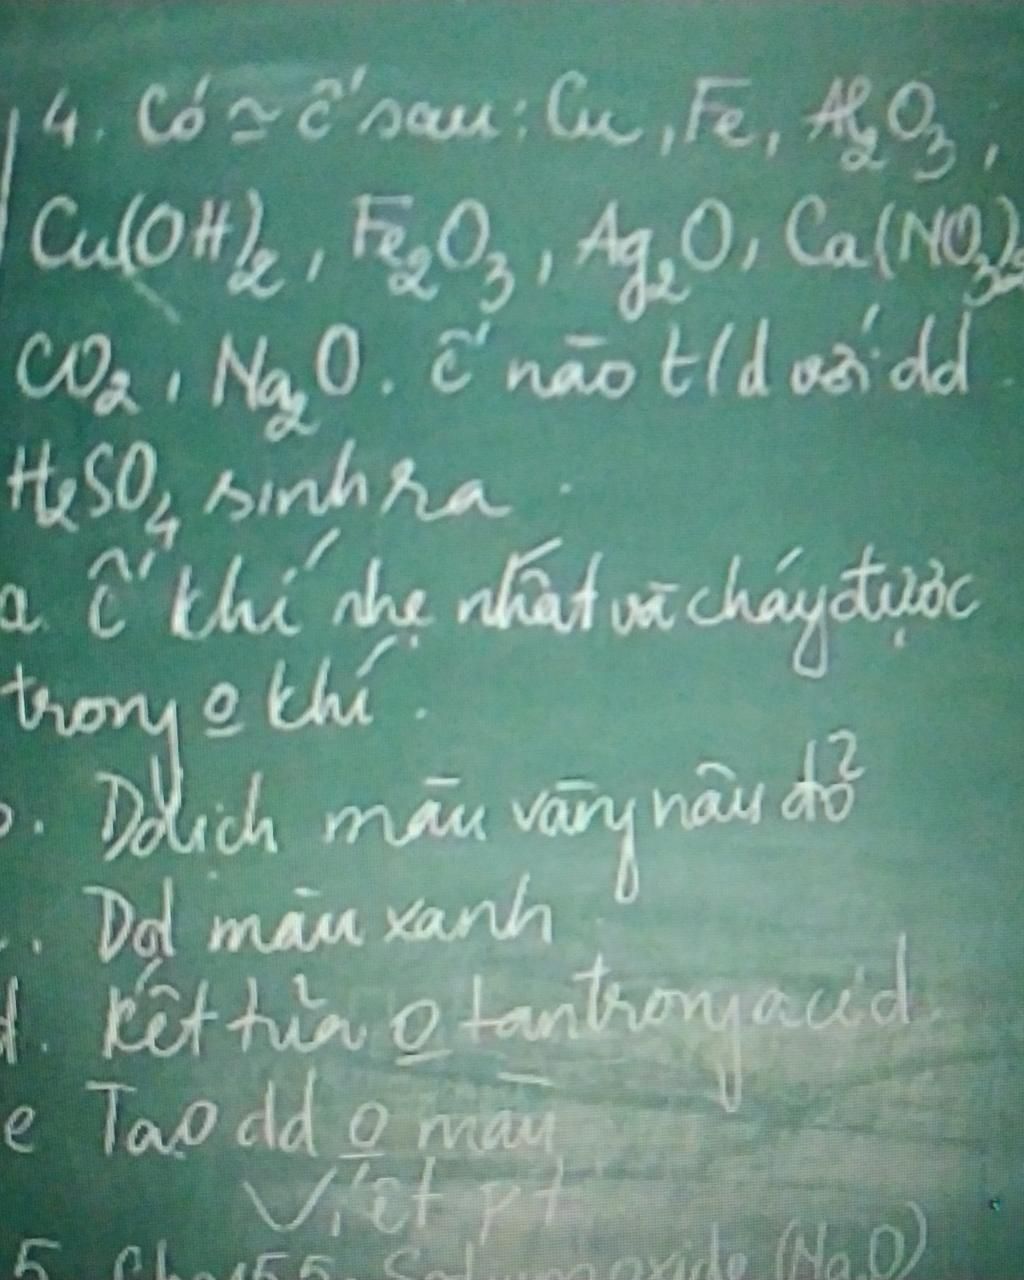 4. Có ≃ c̃' sau: Cu, Fe, Al₂O₃,
Cu(OH)₂, Fe₂O₃, Ag₂O, Ca(NO₃)₂
CO₂, Na₂O. c̃' nào t/d với dd
H₂SO₄ sinh ra
a. c̃' khí nhẹ nhất và cháy được
trong o khí.
. Ddịch màu vàng nâu đỏ
. Dd màu xanh
d. Kết tủa o tan trong acid.
e Tạo dd o màu
Viết pt
5. Cho 155 oxide (Na₂O)